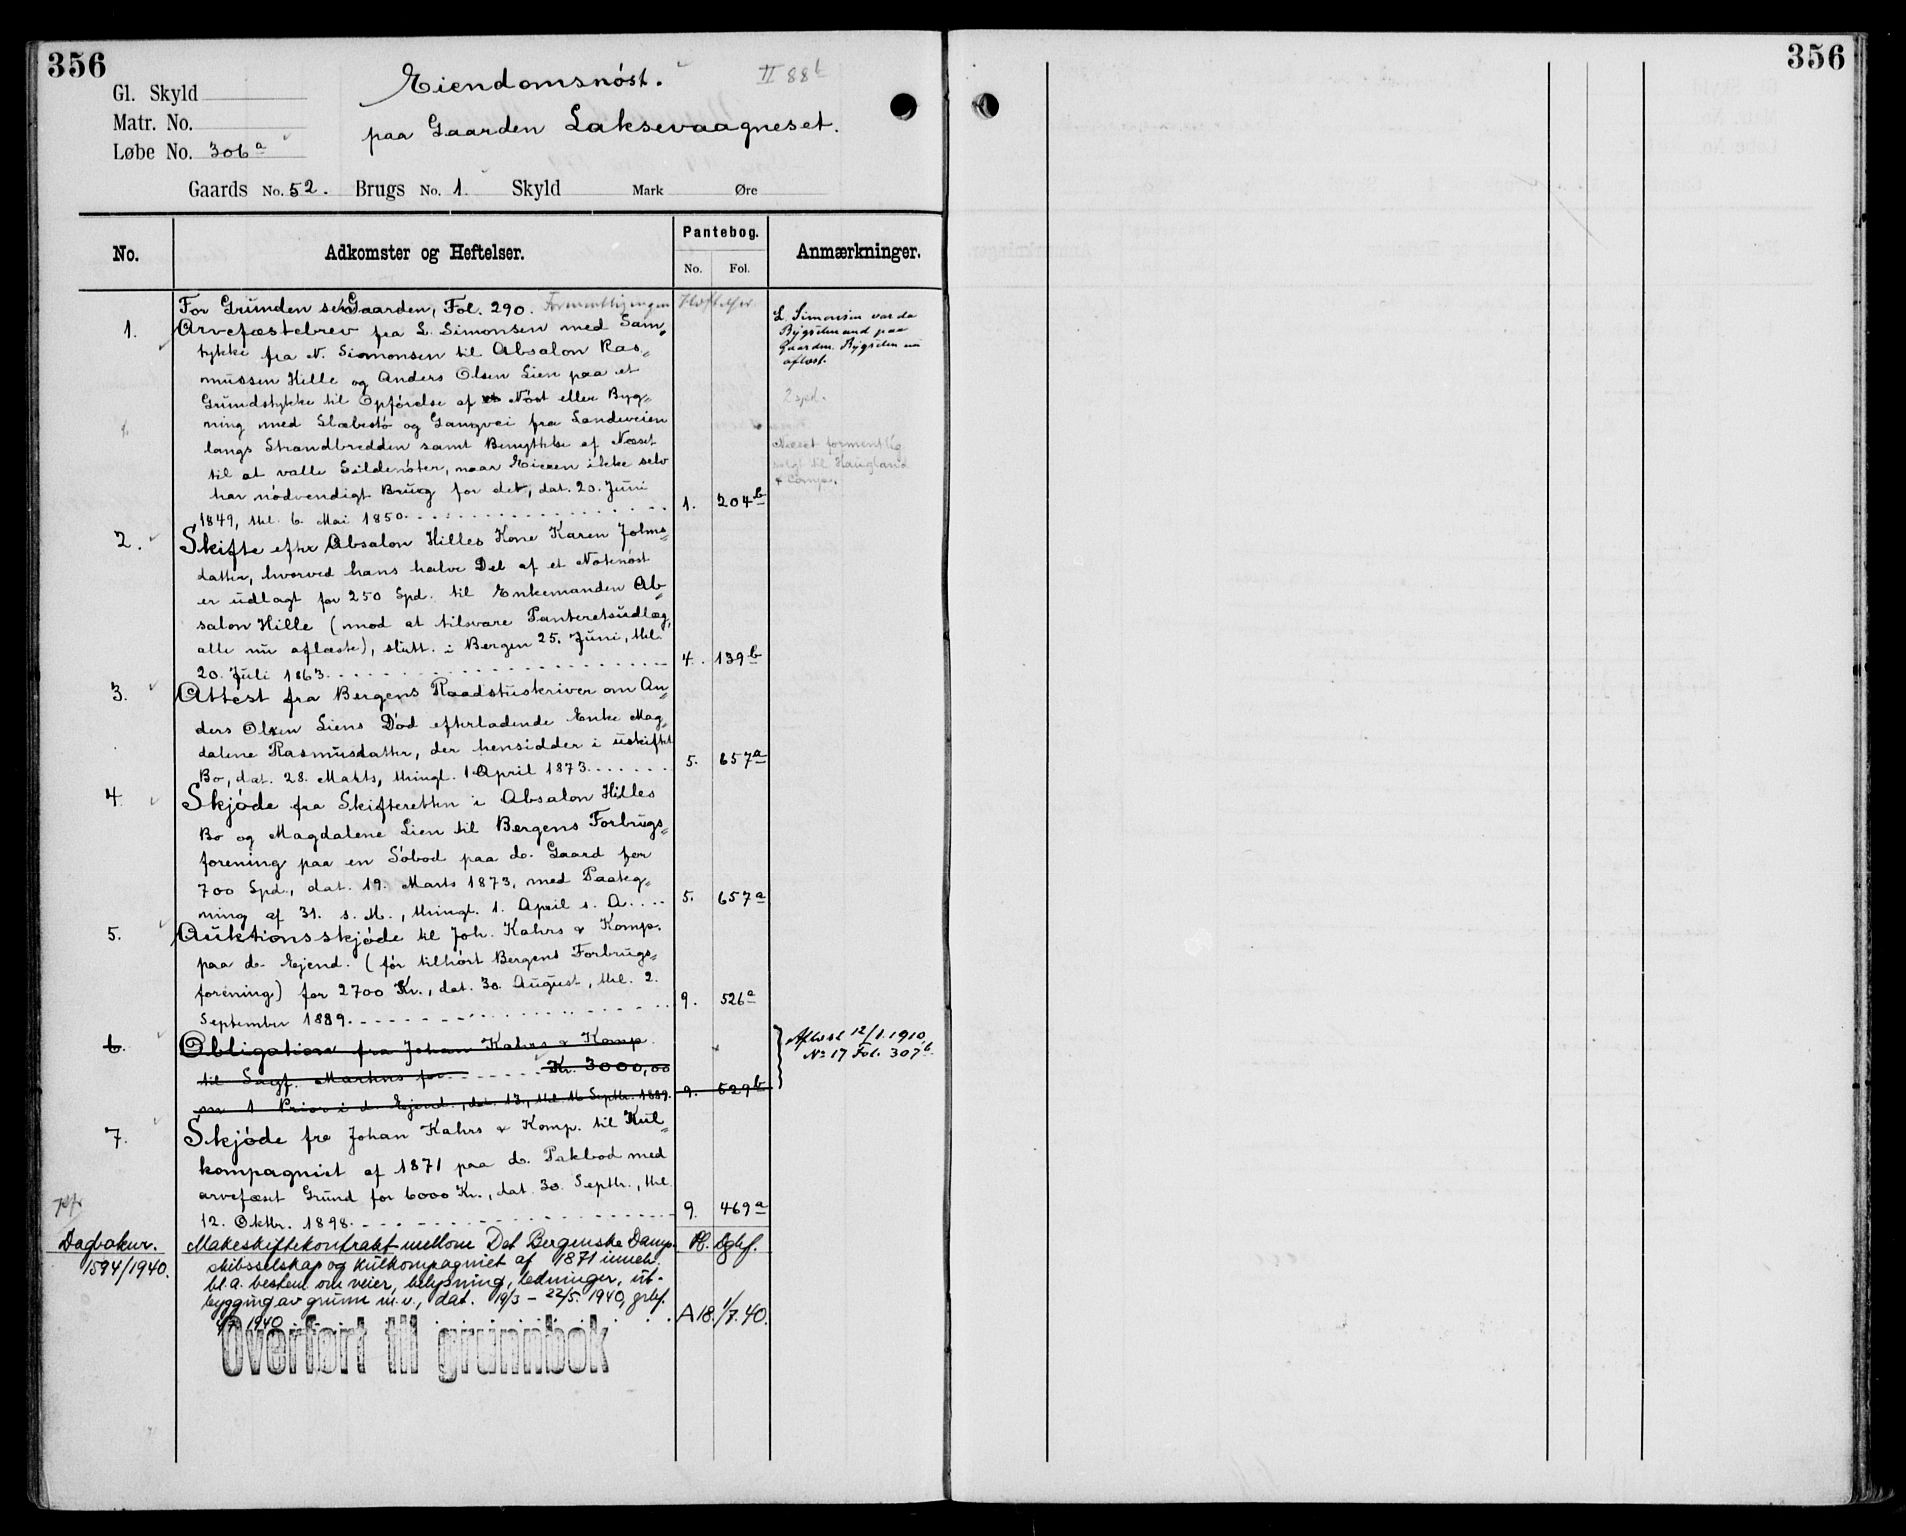 356
356
Eiendomsnøst. II 88b
paa Gaarden Laksevaagneset.
Gl. Skyld
Matr. No.
Løbe No. 306a
Gaards No. 52. Brugs No. 1. Skyld Mark Øre
No. Adkomster og Heftelser. Pantebog. Anmærkninger.
No. Fol.
For Grunden se Gaarden, Fol. 290. Heftelser
1. Arvefæstebrev fra L. Simonsen med Sam„
tykke fra N. Simonsen til Absalon Ras„
mussen Hille og Anders Olsen Lien paa et
Grundstykke til Opførelse af Nøst eller Byg„
ning med Slæbestø og Gangvei fra Landeveien
langs Strandbredden samt Benyttelse af Næset
til at valle Sildenøter, naar Eieren ikke selv
har nødvendigt Brug for det, dat. 20. Juni
1849, thl. 6. Mai 1850. 1. 204b
L. Simonsen var da
Bygselmand paa
Gaarden. Bygselen nu
afløst.
2 spd.
Næset formentlig
solgt til Haugland
& Comp.
2. Skifte efter Absalon Hilles Kone Karen Johns„
datter, hvorved hans halve Del af et Notenøst
er udlagt for 250 Spd. til Enkemanden Ab„
salon Hille (mod at tilsvare Panteretsudlæg,
alle nu aflæste), slutt. i Bergen 25. Juni, thl.
20. Juli 1863. 4. 139b
3. Attest fra Bergens Raadstuskriver om An„
ders Olsen Liens Død efterladende Enke Mag„
dalene Rasmusdatter, der hensidder i uskiftet
Bo, dat. 28. Marts, thingl. 1 April 1873. 5. 657a
4. Skjøde fra Skifteretten i Absalon Hilles
Bo og Magdalene Lien til Bergens Forbrugs„
forening paa en Søbod paa ds. Gaard for
700 Spd., dat. 19. Marts 1873, med Paateg„
ning af 31. s. M., thingl. 1. April s. A. 5. 657a
5. Auktionsskjøde til Joh. Kahrs & Komp.
paa ds. Ejend. (før tilhørt Bergens Forbrugs„
forening) for 2700 Kr., dat. 30. August, thl. 2.
September 1889. 9. 526a
6. Obligation fra Johan Kahrs & Komp.
til Sagf. Martens for Kr. 3000,00
m 1 Prior i ds. Ejend., dat. 13., thl. 16 Septbr. 1889. 9. 529b
Aflæst 12/1. 1910,
No 17 Fol. 307b.
7. Skjøde fra Johan Kahrs & Komp. til Kul„
kompagniet af 1871 paa ds. Pakbod med
arvefæstet Grund for 6000 Kr., dat. 30. Septbr., thl.
12. Oktbr. 1898. 9. 469a
Dagboknr.
1594/1940.
Makeskiftekontrakt mellom Det Bergenske Damp-
skibsselskap og Kulkompagniet af 1871 inneh.
bl. a. bestem. om veier, belysning, ledninger, ut-
bygging av grunn m. v., dat. 19/3 - 22/5. 1940, 
1/7 1940 A 18. 1/7. 40.
Overført til grunnbok